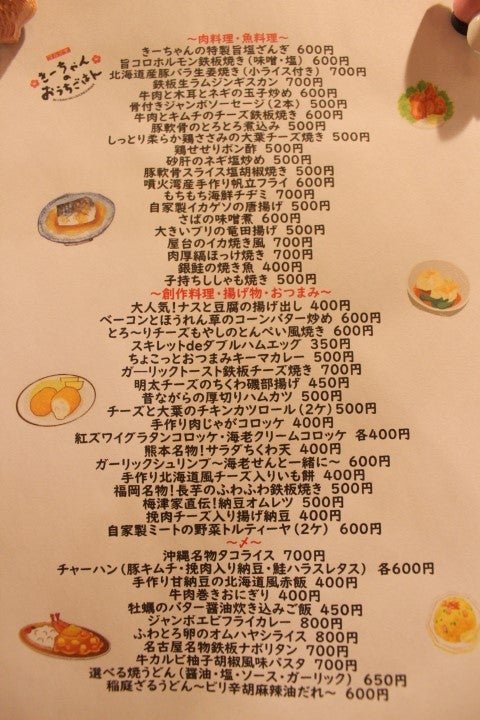 きーちゃん
の
おうちごはん
～肉料理・魚料理～
きーちゃんの特製旨塩ざんぎ 600円
旨コロホルモン鉄板焼き(味噌・塩) 600円
北海道産豚バラ生姜焼き(小ライス付き) 700円
鉄板生ラムジンギスカン 700円
牛肉と木耳とネギの玉子炒め 600円
骨付きジャンボソーセージ(2本) 500円
牛肉とキムチのチーズ鉄板焼き 600円
豚軟骨のとろとろ煮込み 500円
しっとり柔らか鶏ささみの大葉チーズ焼き 500円
鶏せせりポン酢 500円
砂肝のネギ塩炒め 500円
豚軟骨スライス塩胡椒焼き 500円
噴火湾産手作り帆立フライ 600円
もちもち海鮮チヂミ 700円
自家製イカゲソの唐揚げ 500円
さばの味噌煮 600円
大きいブリの竜田揚げ 500円
屋台のイカ焼き風 700円
肉厚縞ほっけ焼き 700円
銀鮭の焼き魚 400円
子持ちししゃも焼き 500円
～創作料理・揚げ物・おつまみ～
大人気!ナスと豆腐の揚げ出し 400円
ベーコンとほうれん草のコーンバター炒め 600円
とろ～りチーズもやしのとんぺい風焼き 600円
スキレットdeダブルハムエッグ 350円
ちょこっとおつまみキーマカレー 500円
ガーリックトースト鉄板チーズ焼き 700円
明太チーズのちくわ磯部揚げ 450円
昔ながらの厚切りハムカツ 500円
チーズと大葉のチキンカツロール(2ケ)500円
手作り肉じゃがコロッケ 400円
紅ズワイグラタンコロッケ・海老クリームコロッケ 各400円
熊本名物!サラダちくわ天 400円
ガーリックシュリンプ～海老せんと一緒に～ 600円
手作り北海道風チーズ入りいも餅 400円
福岡名物!長芋のふわふわ鉄板焼き 500円
梅津家直伝!納豆オムレツ 500円
挽肉チーズ入り揚げ納豆 400円
自家製ミートの野菜トルティーヤ(2ケ) 600円
～〆～
沖縄名物タコライス 700円
チャーハン(豚キムチ・挽肉入り納豆・鮭ハラスレタス) 各600円
手作り甘納豆の北海道風赤飯 400円
牛肉巻きおにぎり 400円
牡蠣のバター醤油炊き込みご飯 450円
ジャンボエビフライカレー 800円
ふわとろ卵のオムハヤシライス 800円
名古屋名物鉄板ナポリタン 700円
牛カルビ柚子胡椒風味パスタ 700円
選べる焼うどん(醤油・塩・ソース・ガーリック) 650円
稲庭ざるうどん～ピリ辛胡麻辣油だれ～ 600円